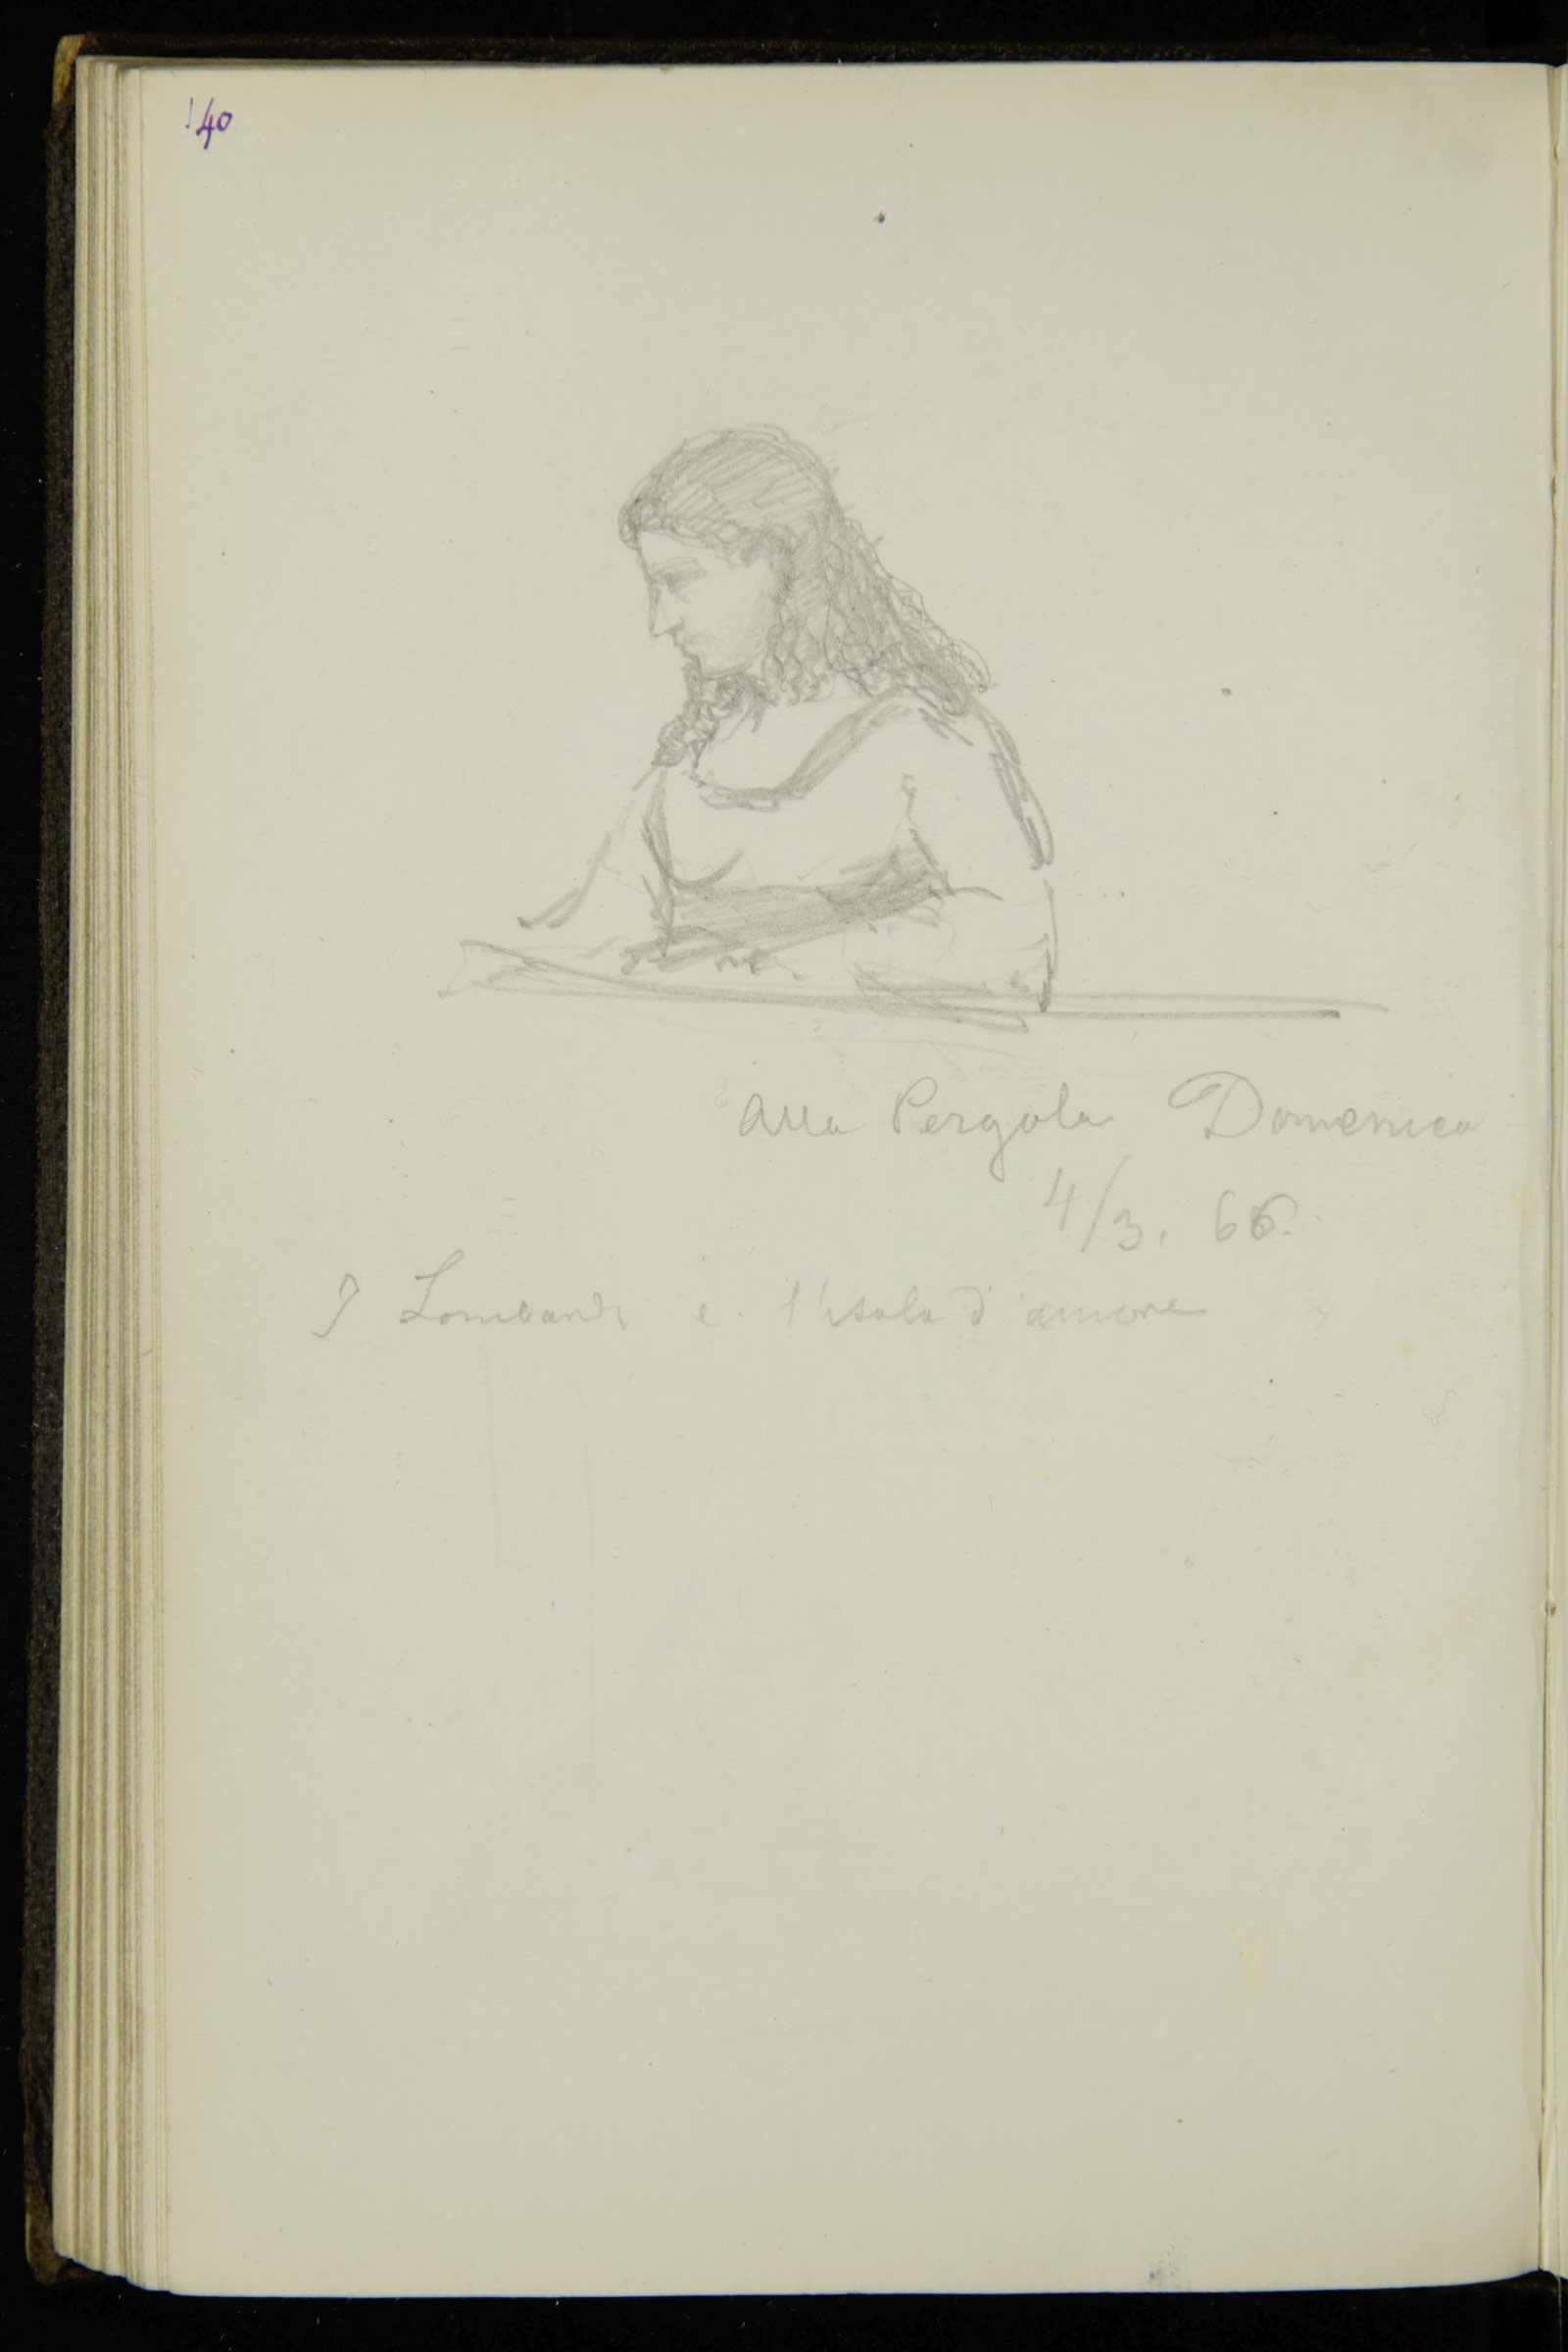 140
alla Pergola Domenica
4/3. 66.
I Lombardi e l'Isola d'amore